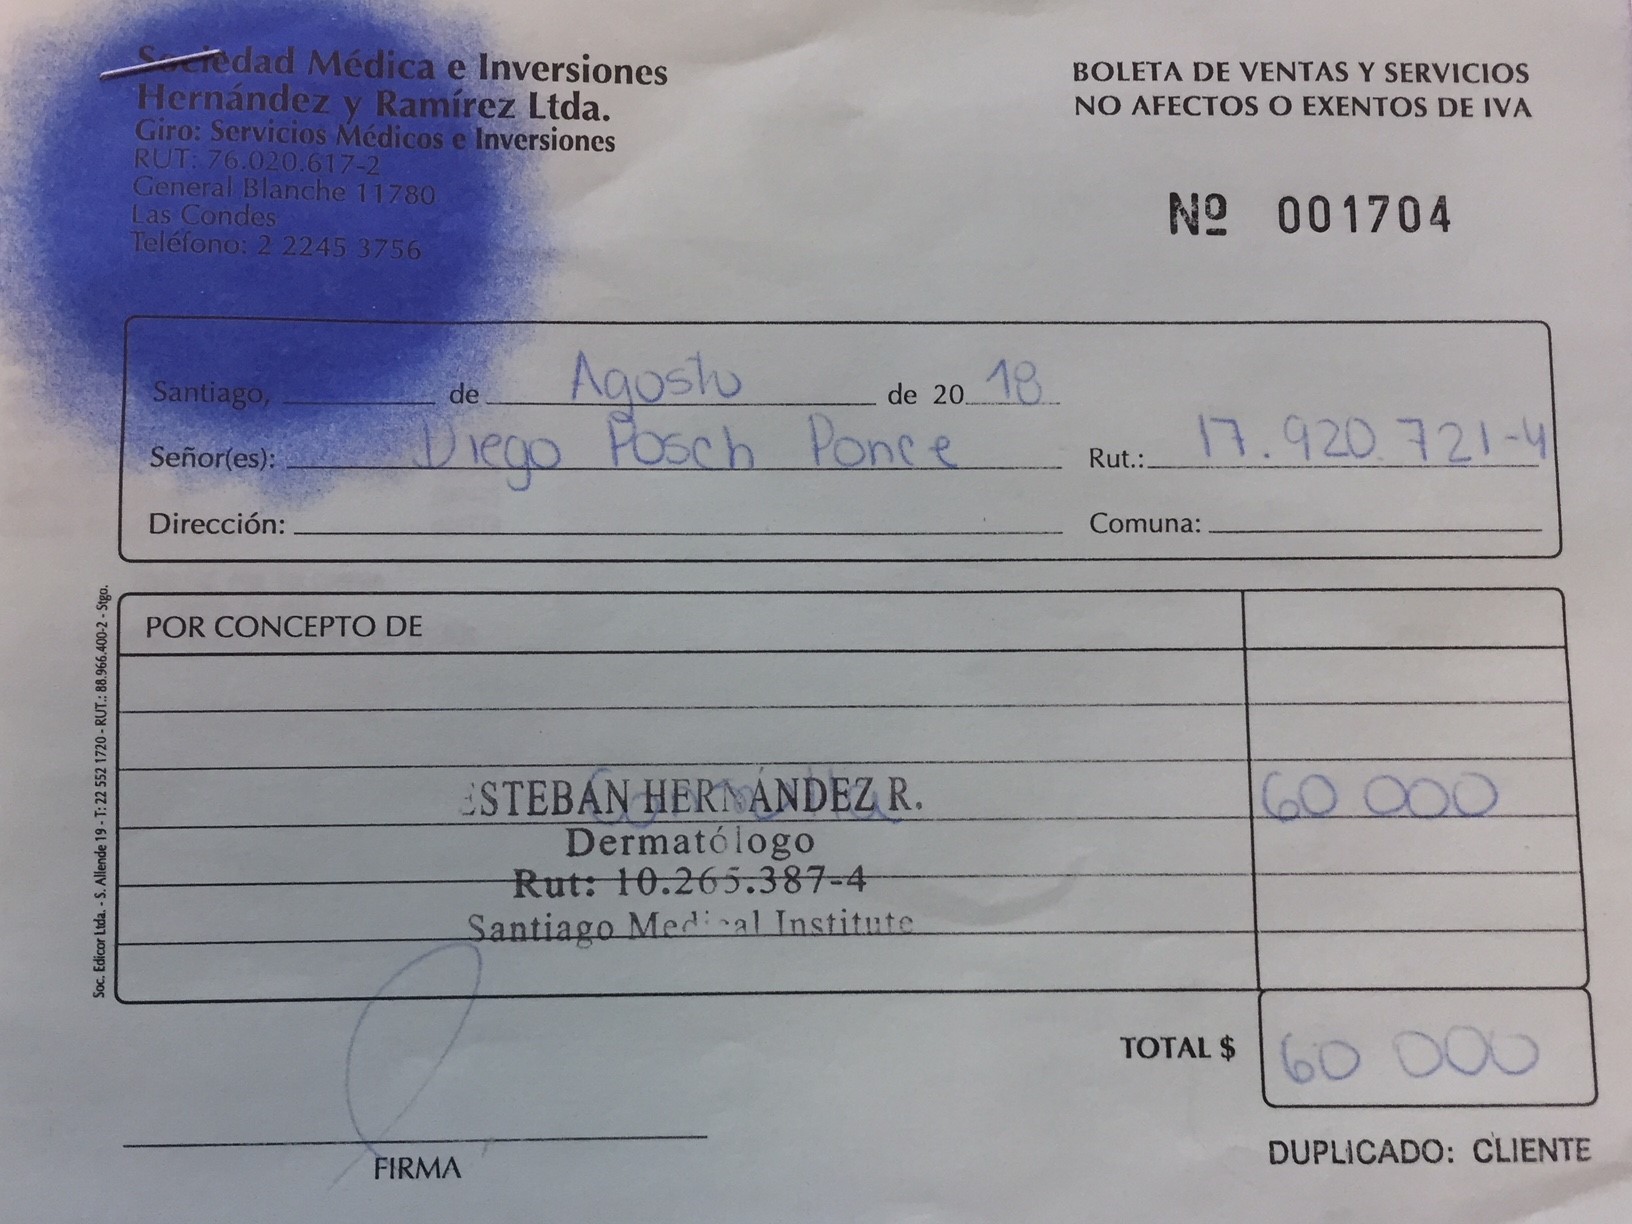 Sociedad Médica e Inversiones
Hernández y Ramírez Ltda.
Giro: Servicios Médicos e Inversiones
RUT: 76.020.617-2
General Blanche 11780
Las Condes
Teléfono: 2 2245 3756
BOLETA DE VENTAS Y SERVICIOS
NO AFECTOS O EXENTOS DE IVA
Nº 001704
Santiago, de Agosto de 20 18
Señor(es): Diego Posch Ponce Rut.: 17.920.721-4
Dirección: Comuna:
POR CONCEPTO DE
60 000
ESTEBAN HERNÁNDEZ R.
Dermatólogo
Rut: 10.265.387-4
Santiago Medical Institute
TOTAL $ 60 000
FIRMA
DUPLICADO: CLIENTE
Soc. Edicor Ltda. - S. Allende 19 - T: 22 552 1720 - RUT.: 88.966.400-2 - Stgo.